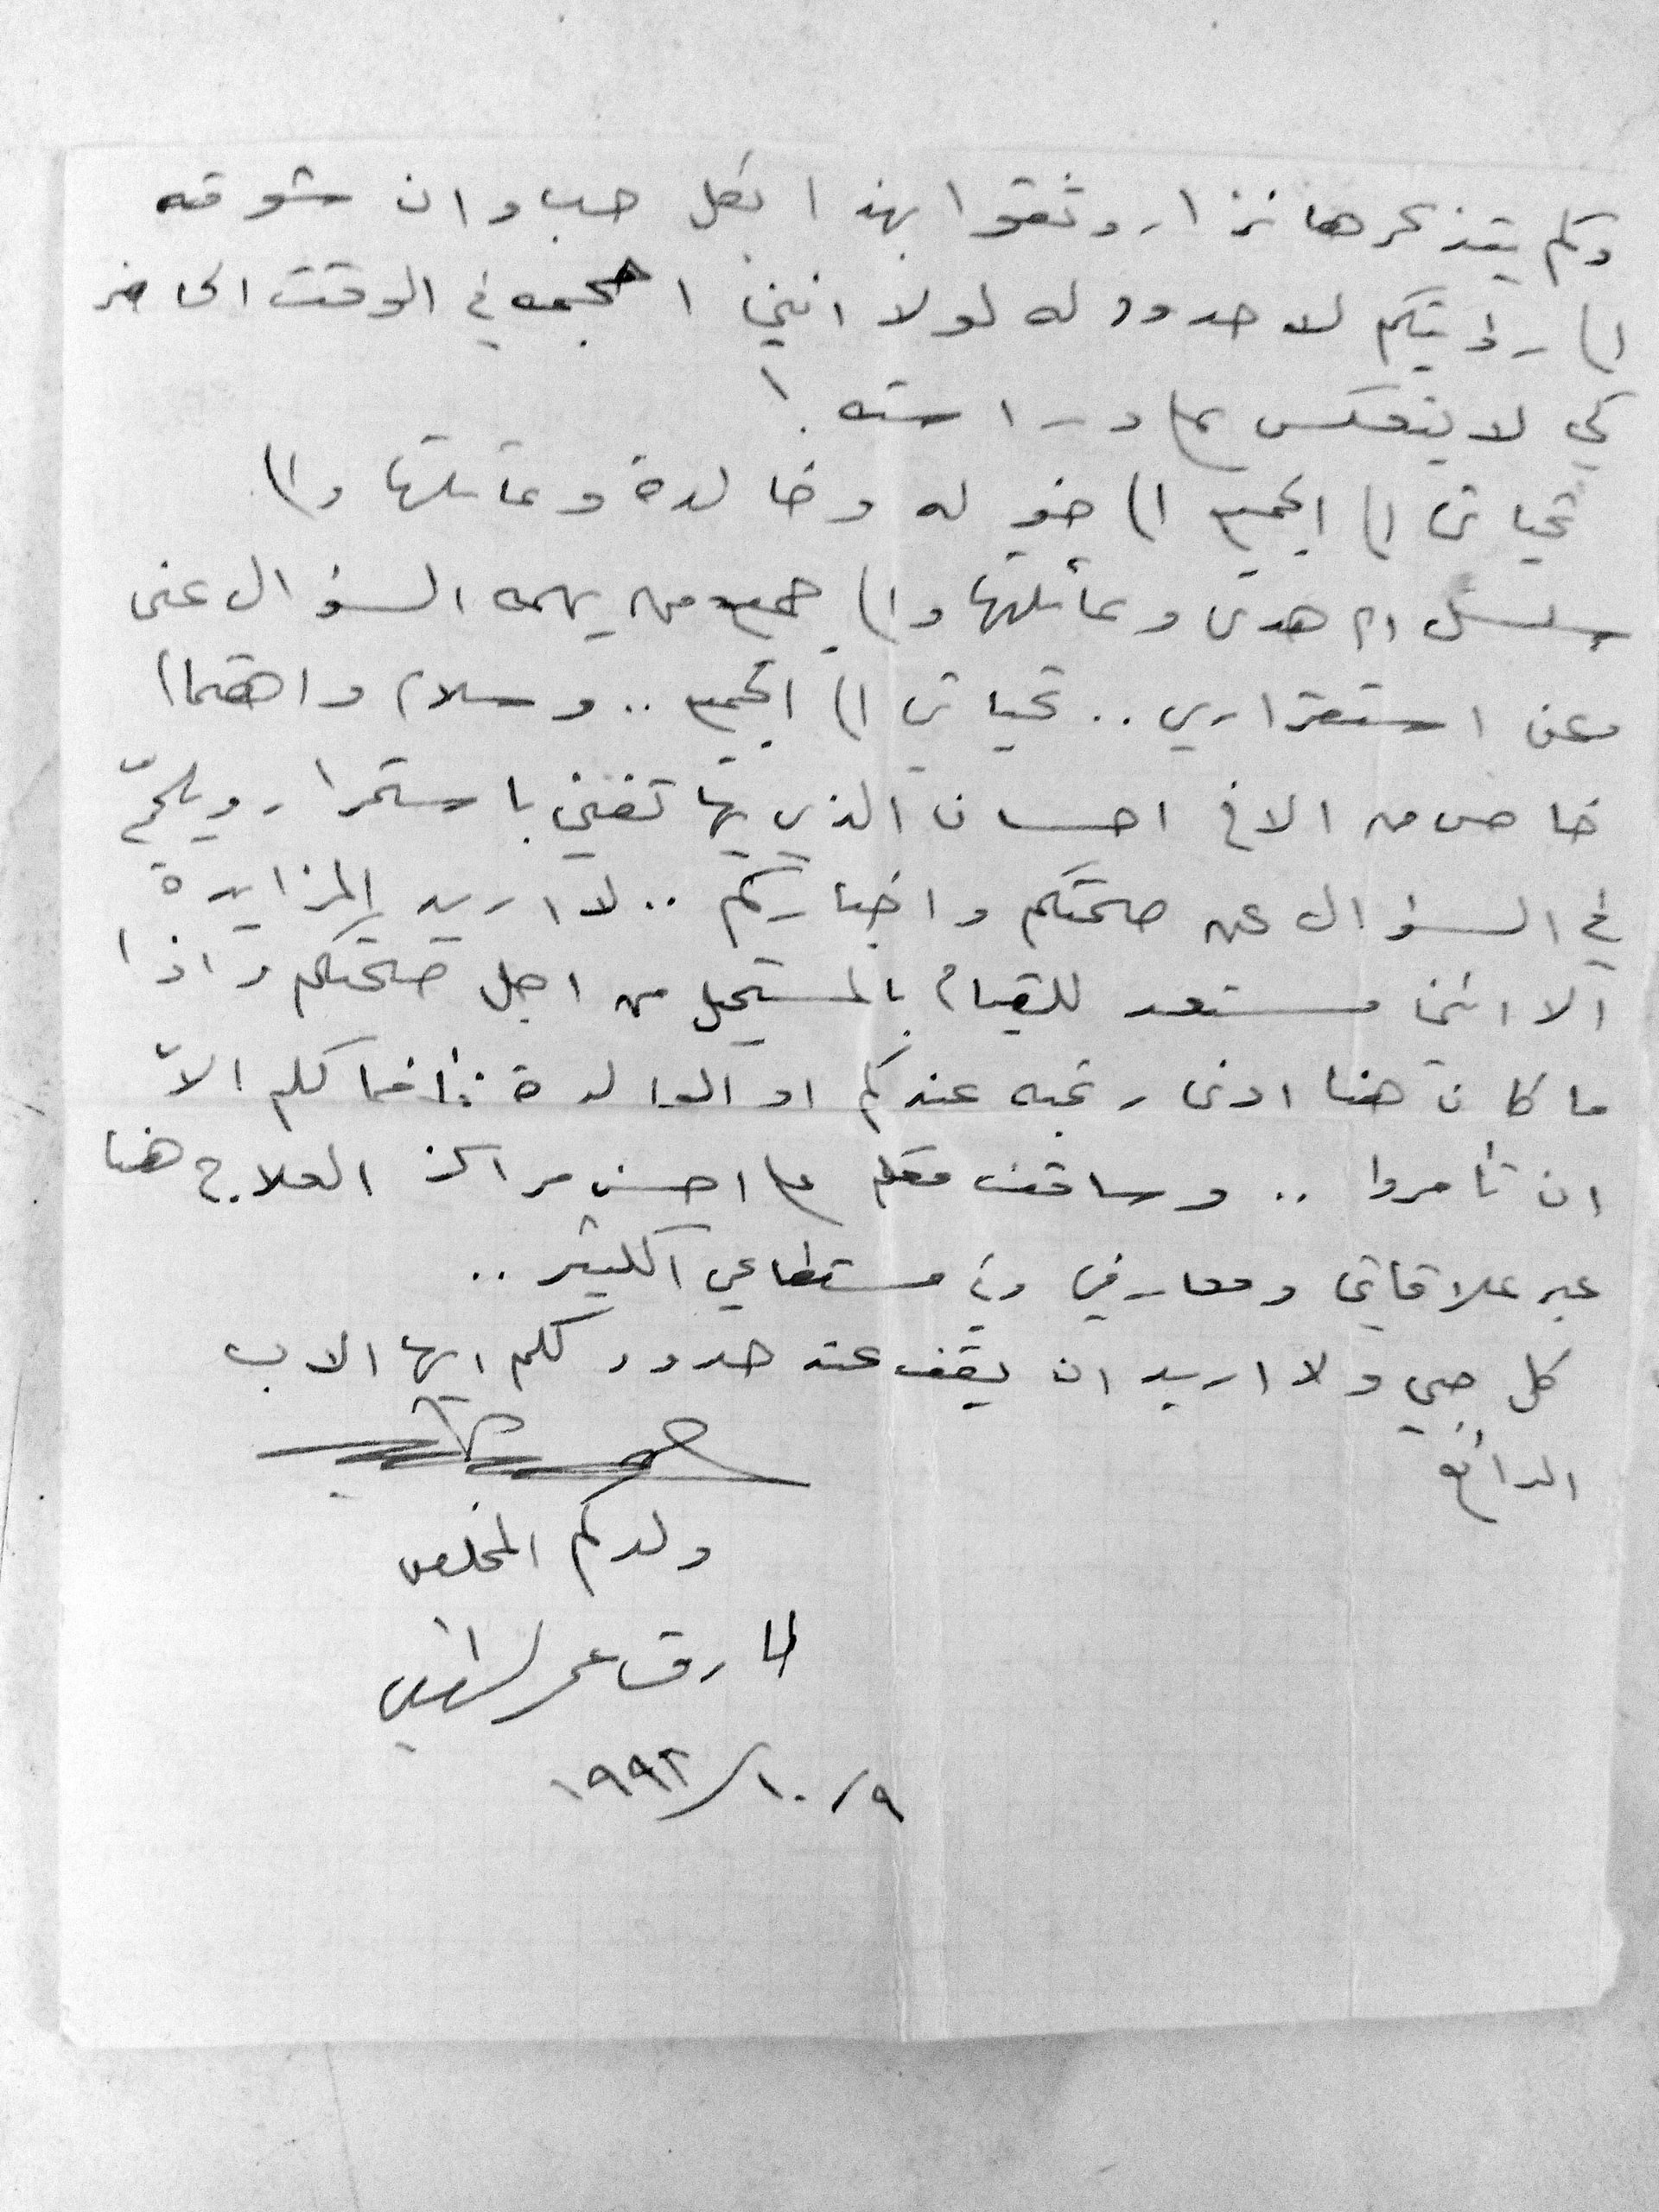 وكم يتذكرها نزار وثقوا بهذا بكل حب وان شوقه
الى رؤيتكم لا حدود له لولا انني احجمه في الوقت الحاضر
كي لا ينعكس على دراسته.
تحياتي الى الجميع الى خوله وخالدة وعائلتها والى
ام هدى وعائلتها والى جميع من يهمه السؤال عني
وعن استقراري .. تحياتي الى الجميع .. وسلام واهتمام
خاص من الاخ احسان الذي يهاتفني باستمرار ويلحّ
في السؤال عن صحتكم واخباركم .. لا اريد المزايدة
الا انني مستعد للقيام بالمستحيل من اجل صحتكم واذا
ما كان هنا ادنى رغبه عندكم او الوالدة فما لكم الاّ
ان تأمروا .. وساقف معكم على احسن مراكز العلاج هنا
عبر علاقاتي ومعارفي وفي مستطاعي الكثير ..
كل حبي ولا اريد ان يقف عند حدود لكم ايها الاب
الرائع
ولدكم المخلص
طارق عمر
٩/١٠/١٩٩٢